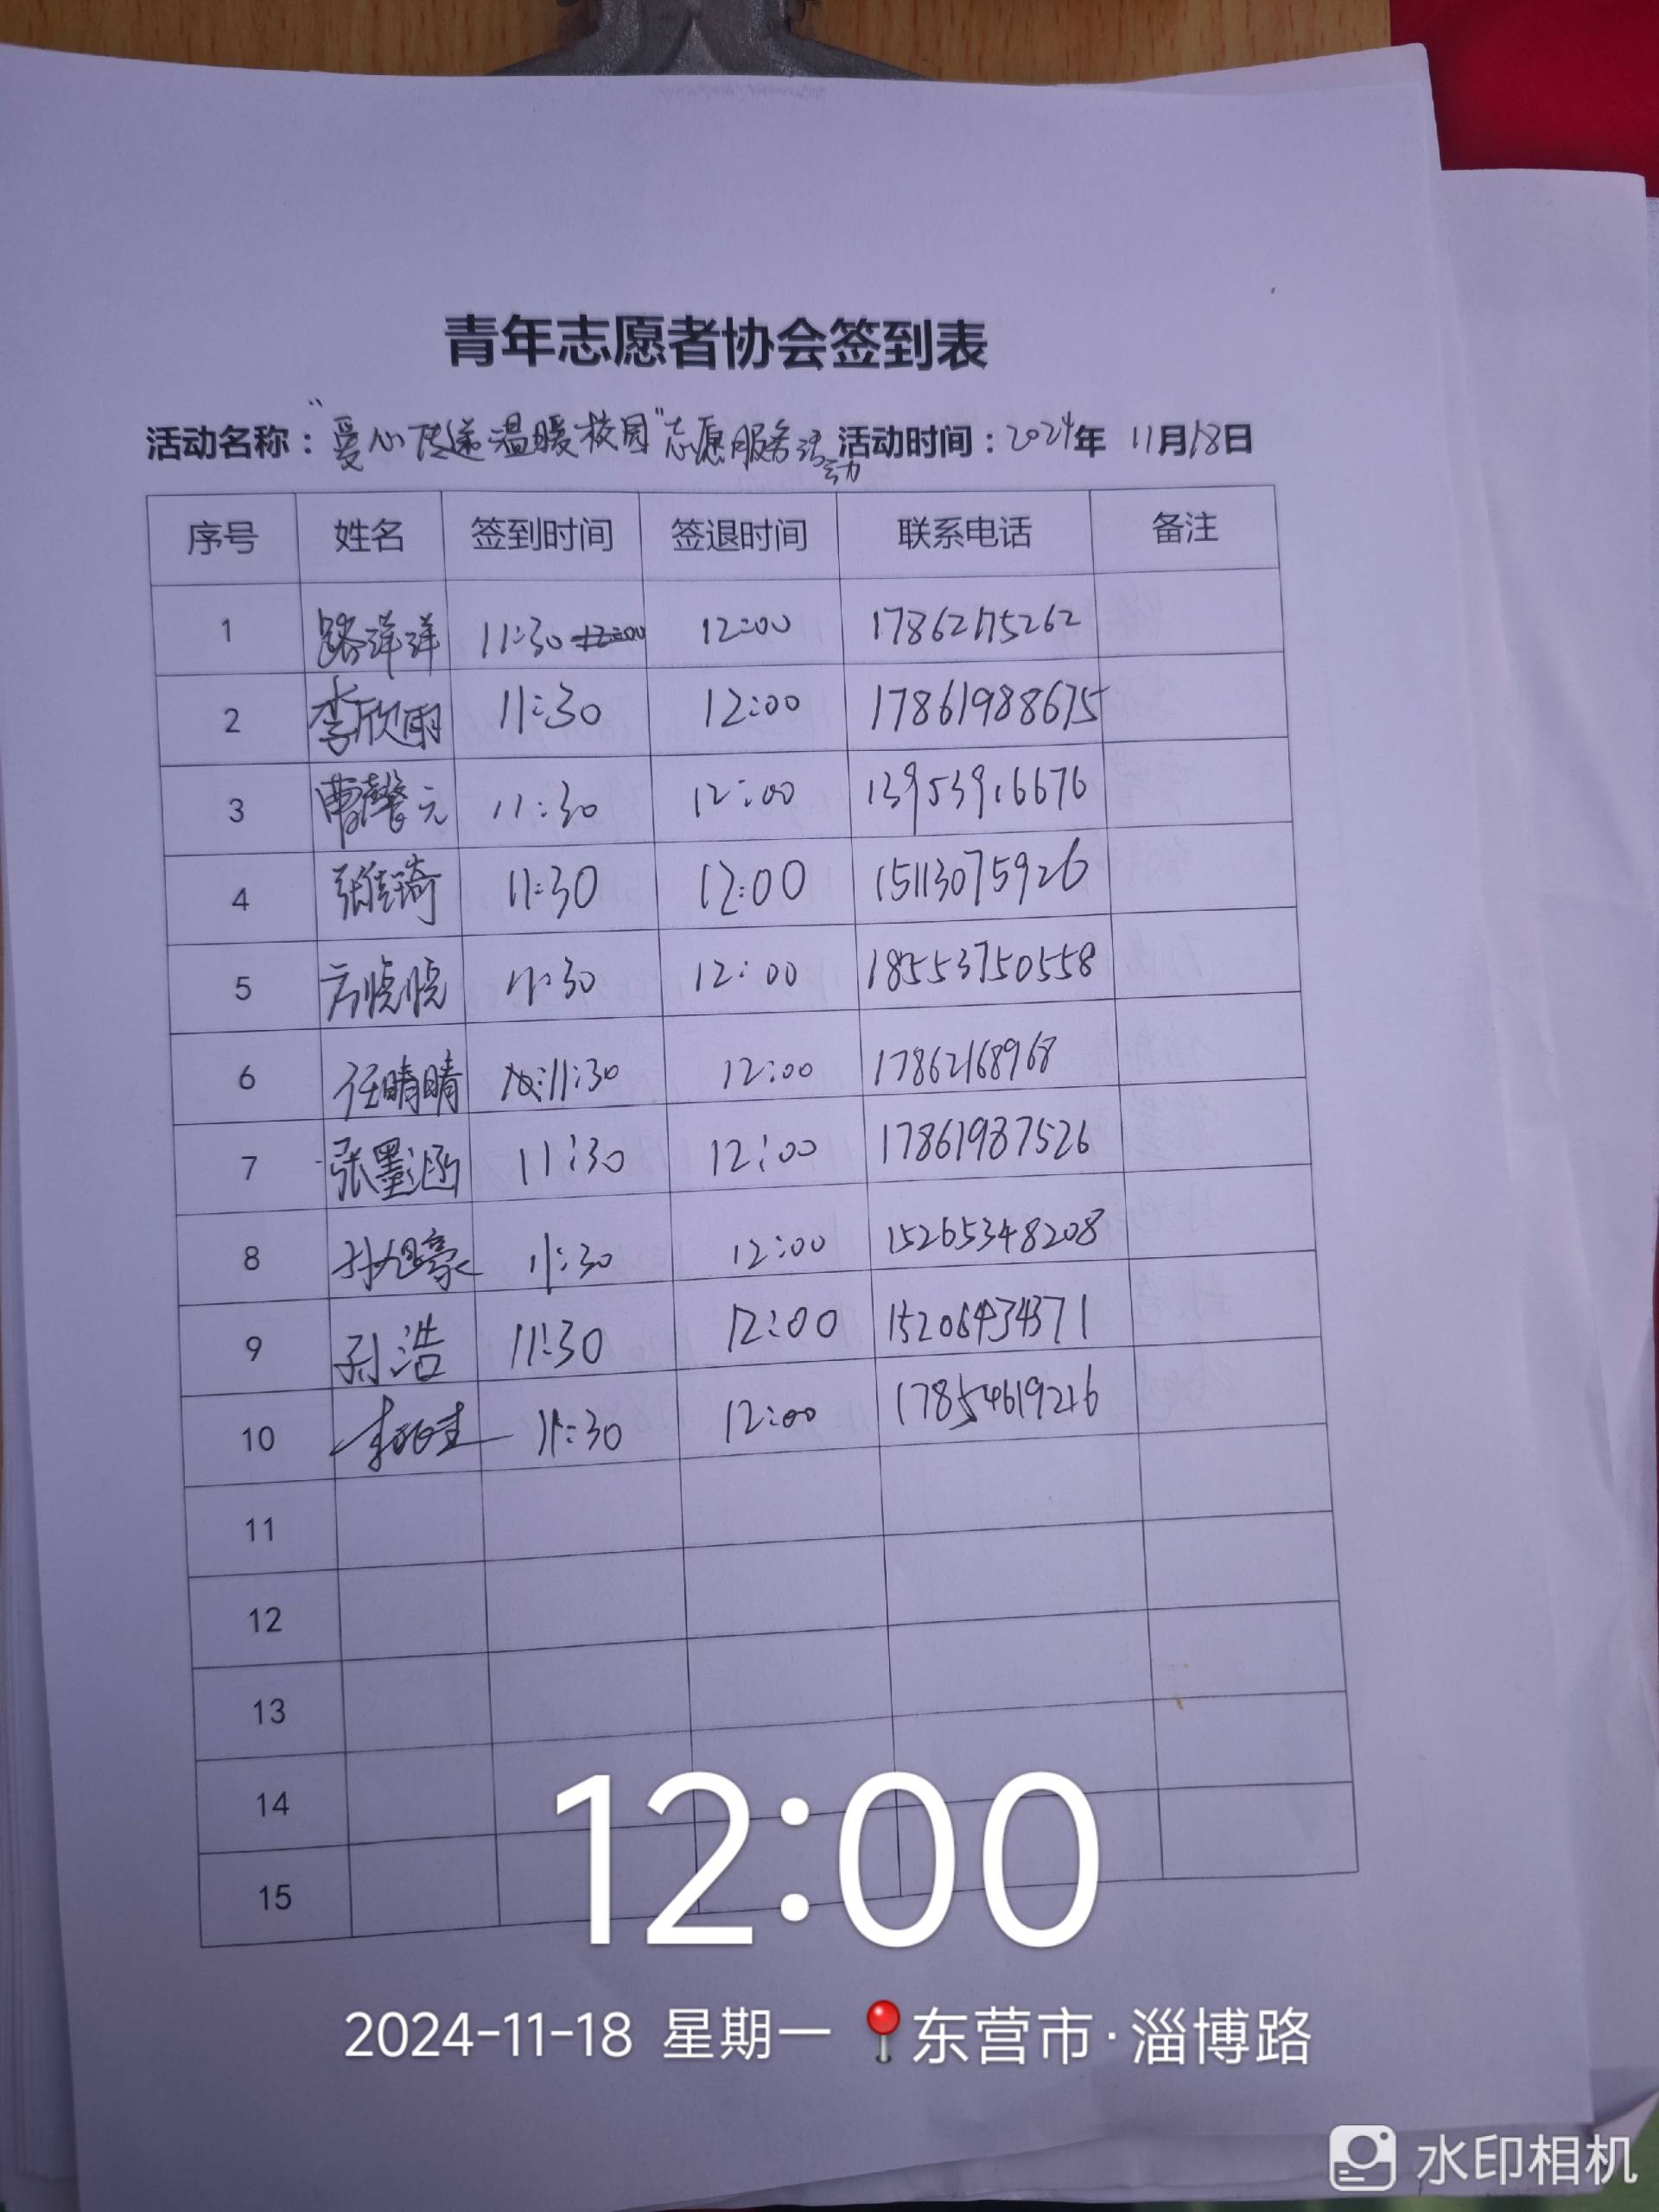 青年志愿者协会签到表
活动名称：“爱心传递温暖校园”志愿服务活动 活动时间：2024年 11月18日
序号 姓名 签到时间 签退时间 联系电话 备注
1 路洋洋 11:30 12:00 17862175262
2 李欣雨 11:30 12:00 17861988675
3 曹馨元 11:30 12:00 13953916676
4 张佳琦 11:30 12:00 15113075926
5 方晓晓 11:30 12:00 18553750558
6 任晴晴 11:30 12:00 17862168968
7 张墨涵 11:30 12:00 17861987526
8 孙旭豪 11:30 12:00 15265348208
9 孙浩 11:30 12:00 15206434371
10 11:30 12:00 17854619216
11
12
13
14
15
12:00
2024-11-18 星期一 东营市·淄博路
水印相机